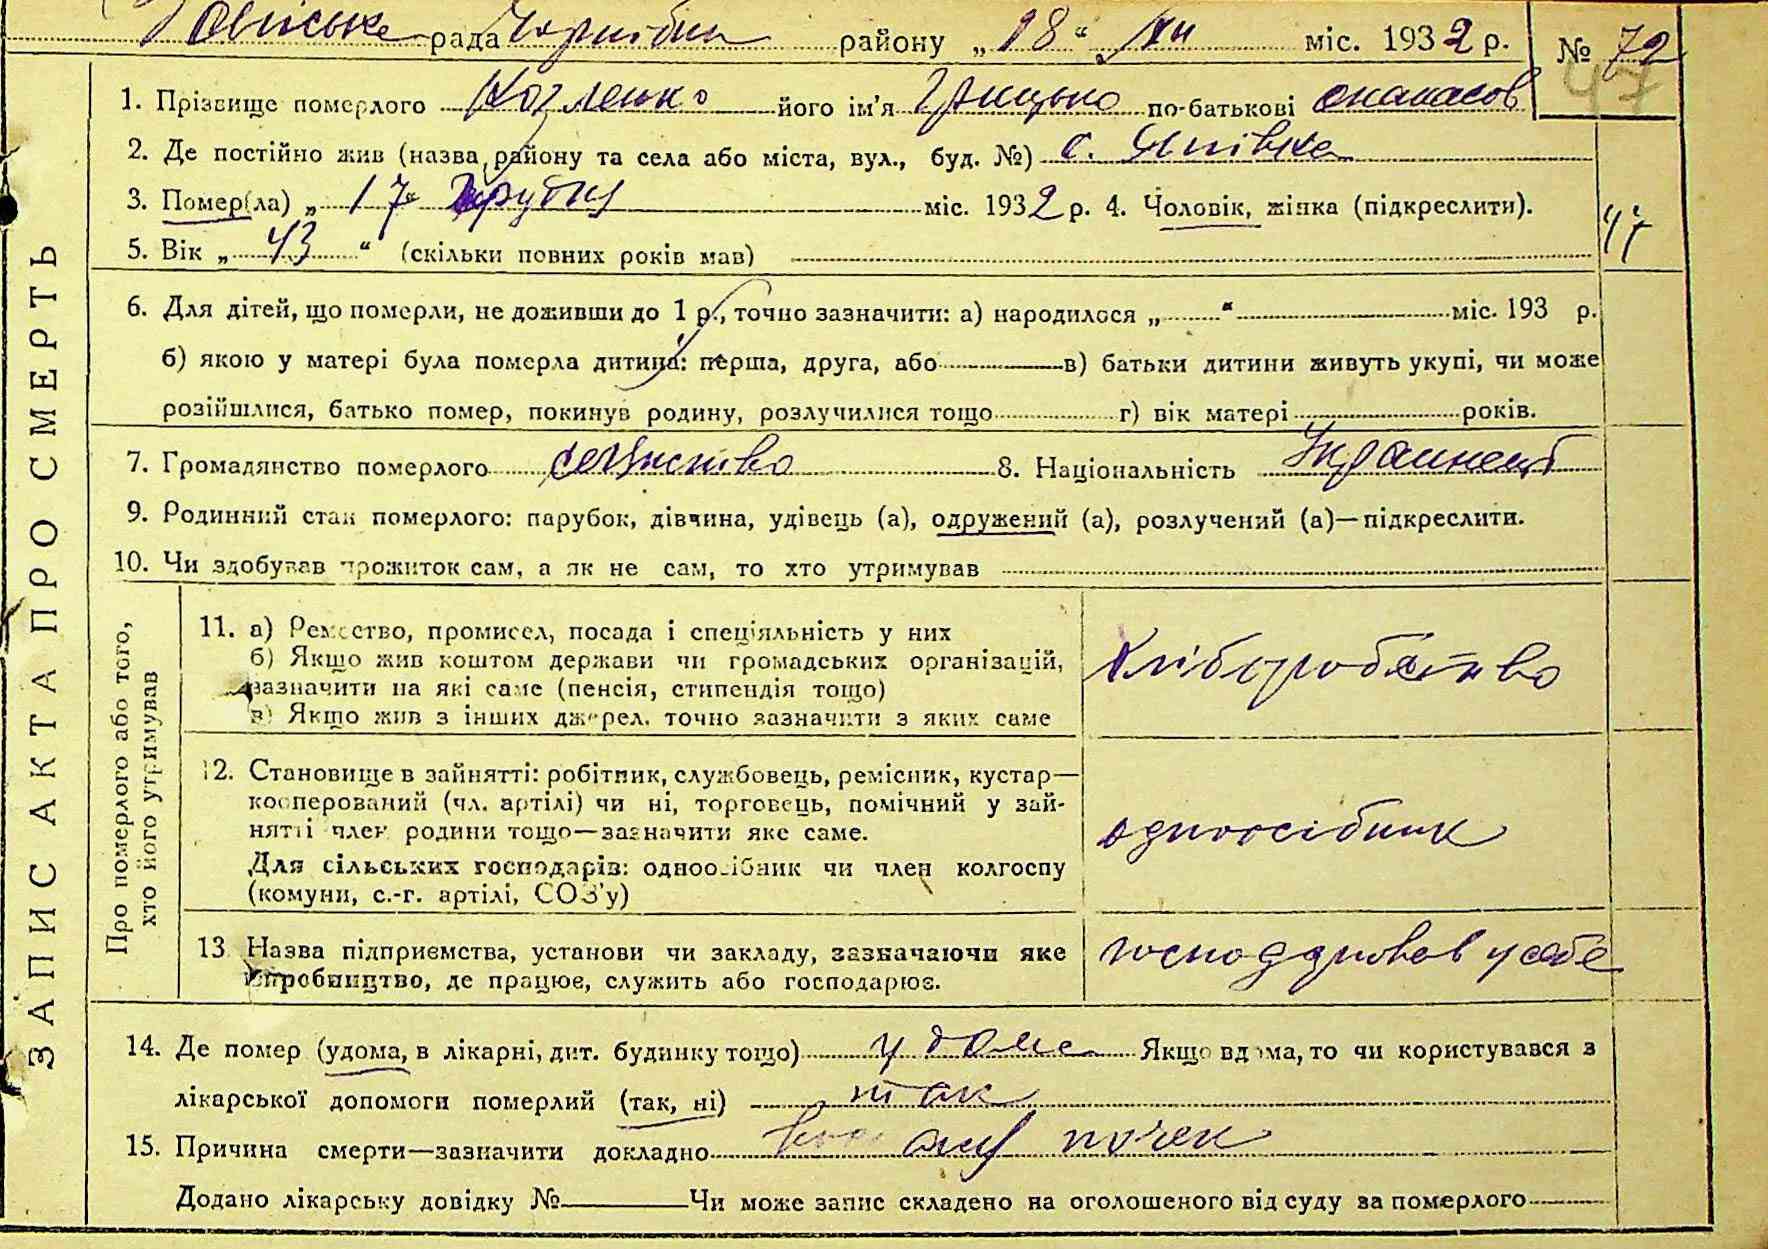 рада району „18“ XII міс. 1932 р. № 72
47
1. Прізвище померлого Козленко його ім'я Грицько по-батькові Опанасов
2. Де постійно жив (назва району та села або міста, вул., буд. №) с.
3. Помер(ла) „17 Грудня міс. 1932 р. 4. Чоловік, жінка (підкреслити).
47
5. Вік „43“ (скільки повних років мав)
6. Для дітей, що померли, не доживши до 1 р., точно зазначити: а) народилося „ “ міс. 193 р.
б) якою у матері була померла дитина: перша, друга, або в) батьки дитини живуть укупі, чи може
розійшлися, батько помер, покинув родину, розлучилися тощо г) вік матері років.
7. Громадянство померлого 8. Національність Українець
9. Родинний стан померлого: парубок, дівчина, удівець (а), одружений (а), розлучений (а)—підкреслити.
10. Чи здобував прожиток сам, а як не сам, то хто утримував
ЗАПИС АКТА ПРО СМЕРТЬ
Про померлого або того,
хто його утримував
11. а) Ремество, промисел, посада і спеціяльність у них
б) Якщо жив коштом держави чи громадських організацій,
зазначити на які саме (пенсія, стипендія тощо)
в) Якщо жив з інших джерел, точно зазначити з яких саме
Хліборобство
12. Становище в зайнятті: робітник, службовець, ремісник, кустар—
кооперований (чл. артілі) чи ні, торговець, помічний у зай-
нятті член родини тощо—зазначити яке саме.
Для сільських господарів: одноосібник чи член колгоспу
(комуни, с.-г. артілі, СОЗ'у)
одноосібник
13 Назва підприємства, установи чи закладу, зазначаючи яке
виробництво, де працює, служить або господарює.
господарював у себе
14. Де помер (удома, в лікарні, дит. будинку тощо) у доме Якщо вдома, то чи користувався з
лікарської допомоги померлий (так, ні) так
15. Причина смерти—зазначити докладно почек
Додано лікарську довідку № Чи може запис складено на оголошеного від суду за померлого